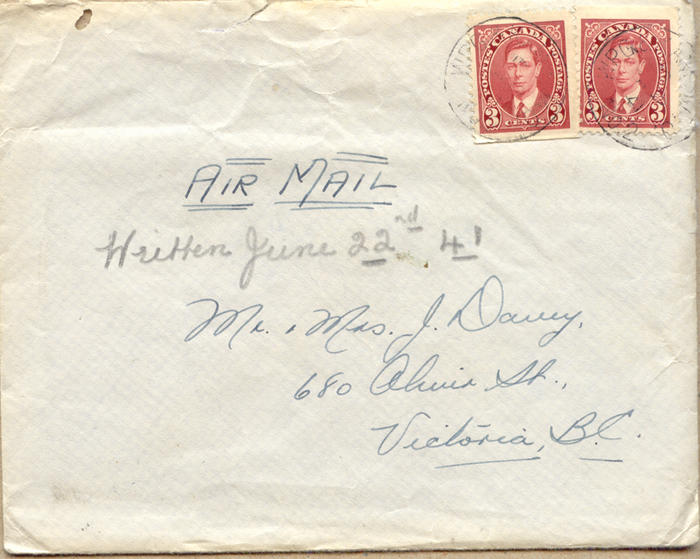 POSTES CANADA POSTAGE
3 CENTS 3
POSTES CANADA POSTAGE
3 CENTS 3
AIR MAIL
Written June 22nd 41
Mr. & Mrs. J. Davey,
680 Oliver St.,
Victoria, B.C.